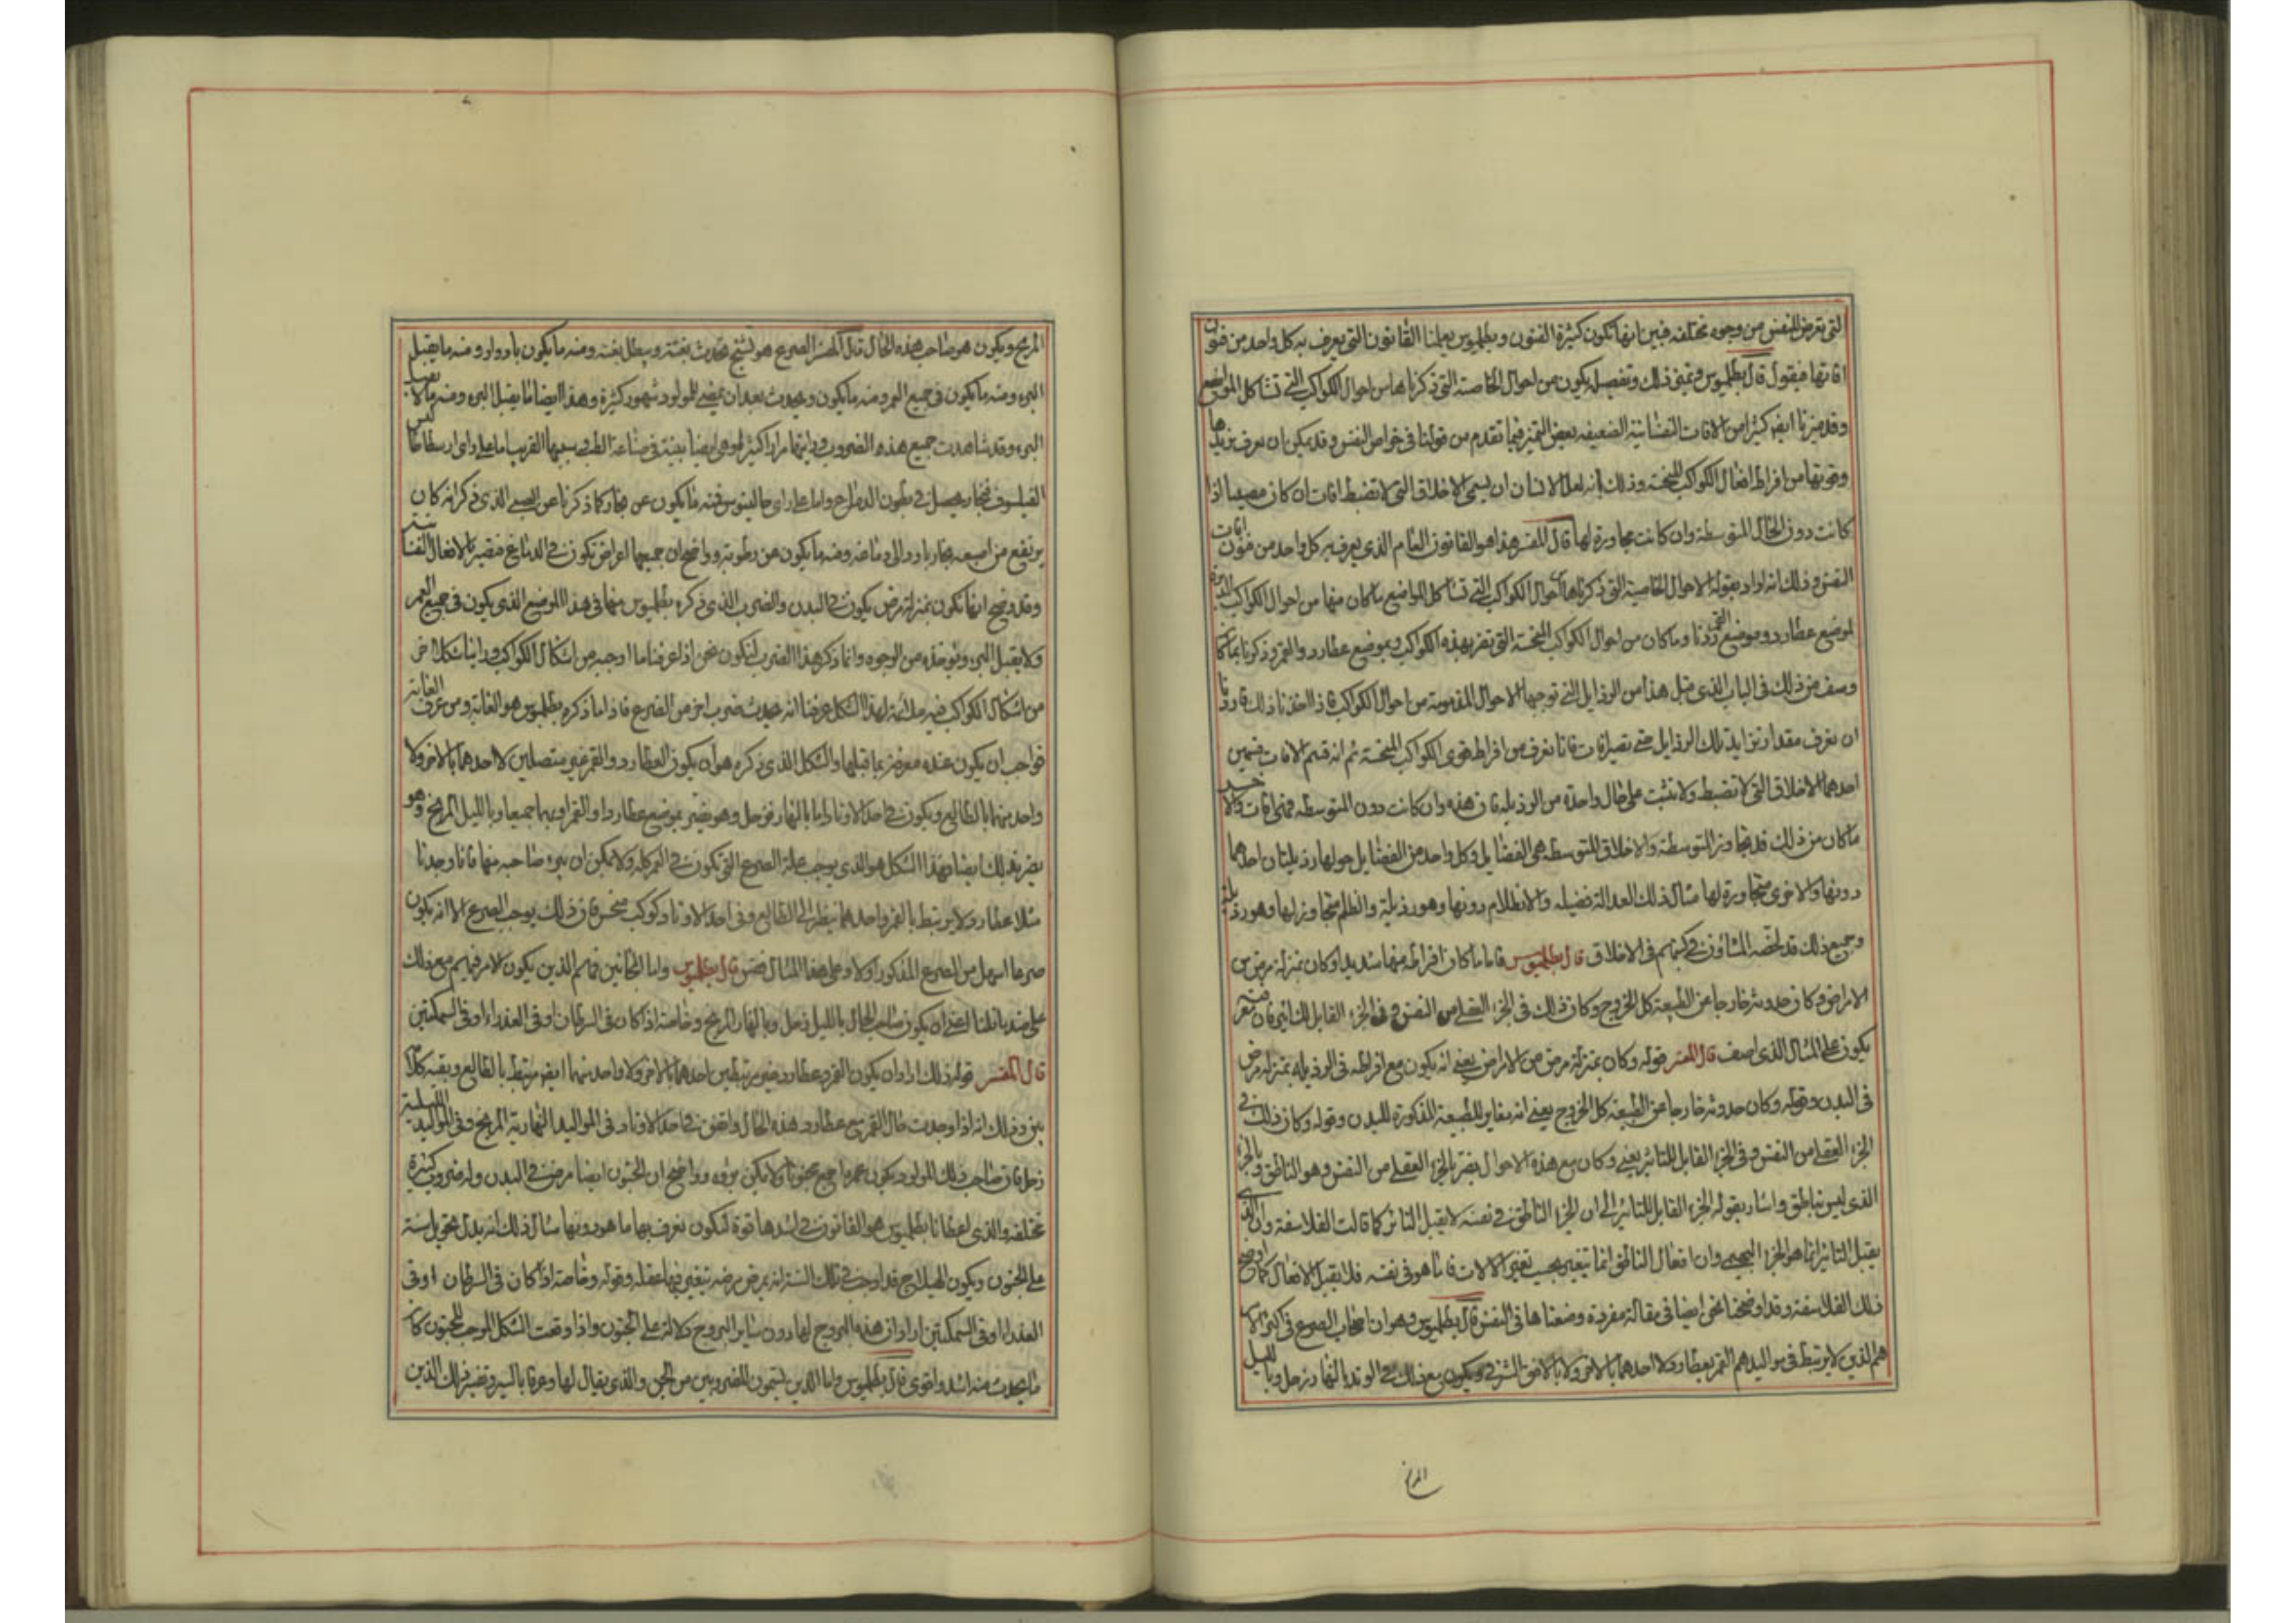 التى تعرض للنفس من وجوه مختلفه فبين انها تكون كثيرة الفنون وبطليموس يعلمنا القانون التى يعرف به كل واحد من فنون
افاتها فيقول قال بطليموس وتميز ذلك وتفصيله يكون من احوال الخاصته التى ذكرناها من احوال الكواكب التى تشاكل المواضع
وقد ميزنا ايضا كثيرا من الافات النفسانية الضعيفه بعض التميز فيما تقدم من قولنا فى خواص النفس وقد يمكن ان يعرف تزيدها
وقوتها من افراط افعال الكواكب المنحسة وذلك انه لعل الانسان ان يسمى الاخلاق التى لا تنضبط افات ان كان مصيبا اذا
كانت دون الحال المتوسطة وان كانت مجاوزة لها قال المفسر هذا هو القانون العام الذى يعرف به كل واحد من فنون افات
النفس وذلك انه اراد بقوله الاحوال الخاصية التى ذكرناها احوال الكواكب التى تشاكل المواضع ما كان منها من احوال الكواكب
لموضع عطارد وموضع القمر وما كان من احوال الكواكب المنحسة التى تضر بهذه الكواكب وبموضع عطارد والقمر وذكرنا
وسف من ذلك فى الباب الذى قبل هذا من الرذايل التى توجبها الاحوال المذمومة من احوال الكواكب فاذا اخذنا ذلك فاردنا
ان نعرف مقدار تزايد تلك الرذايل حتى تصير افات فانا نعرف من افراط قوى الكواكب المنحسة ثم انه قسم الافات قسمين
احدهما الاخلاق التى لا تنضبط ولا تثبت على حال واحدة من الرذيله فان هذه وان كانت دون المتوسطه فهى افات والاخر
ما كان من ذلك قد تجاوز المتوسطة والاخلاق المتوسطه هى الفضايل وكل واحد من الفضايل حولها رذيلتان احداهما
دونها والاخرى متجاوزة لها مثال ذلك العدالة فضيله والانظلام دونها وهو رذيلة والظلم متجاوز لها وهو رذيلة
وجميع ذلك قد لخصه المشاؤن فى كتبهم فى الاخلاق قال بطليموس فاما ما كان افراطه منها شديدا وكان بمنزلة مرض من
الامراض وكان حدوثه خارجا عن الطبيعة كل الخروج وكان ذلك فى الجزء العقلى من النفس وفى الجزء القابل للتاثير فان
يكون على المثال الذى اصف قال المفسر قوله وكان بمنزلة مرض من الامراض يعنى انه يكون مع افراطه فى الرذيله بمنزله مرض
فى البدن وقوله وكان حدوثه خارجا عن الطبيعة كل الخروج يعنى انه مغاير للطبيعة المذكورة للبدن وقوله وكان ذلك فى
الجزء العقلى من النفس وفى الجزء القابل للتاثير يعنى وكان مع هذه الاحوال يضر بالجزء العقلى من النفس وهو الناطق وبالجزء
الذى ليس بناطق واشار بقوله الجزء القابل للتاثير الى ان الجزء الناطق فى نفسه لا يقبل التاثر كما قالت الفلاسفة وان الذى
يقبل التاثير انما هو الجزء البهيمى وان افعال الناطق انما تتغير بحسب تغير الالات فاما هو فى نفسه فلا يقبل الانفعال كما اوضح
ذلك الفلاسفة وقد اوضحنا نحن ايضا فى مقالة مفردة وضعناها فى النفس قال بطليموس وهو ان اصحاب الصرع فى اكثر الامر
هم الذين لا يرتبط فى مواليدهم القمر بعطارد لا احدهما بالاخر ولا بالافق الشرقى ويكون مع ذلك فى الوتد بالنهار زحل وبالليل
المريخ
المريخ ويكون هو صاحب هذه الحال قال المفسر الصرع هو تشنج يحدث بغتة ويبطل بغته ومنه ما يكون بادوار ومنه ما يقبل
البرء ومنه ما يكون فى جميع العمر ومنه ما يكون ويحدث بعد ان يمضى للمولود شهور كثيرة وهذا ايضا اما يقبل البرء ومنه ما لا يقبل
البرء وقد شاهدت جميع هذه الضروب ورايتها مرارا كثيرة وهى ايضا بينة فى صناعة الطب وسببها القريب اما على راى ارسطاطاليس
الفيلسوف فبخار يحصل فى بطون الدماغ واما على راى جالينوس فمنه ما يكون عن بخار كما ذكرنا عن الصبى الذى ذكر انه كان
يرتفع من اصبعه بخار بارد الى دماغه ومنه ما يكون عن رطوبة وواضح ان جميعها اعراض تكون فى الدماغ فتضر بالافعال النفسانية
وقد وضح انها تكون بمنزلة مرض يكون فى البدن والضرب الذى ذكره بطليموس منها فى هذا الموضع الذى يكون فى جميع العمر
ولا يقبل البرء من الوجوه وانما ذكر هذا الضرب لنكون نحن اذا عرفنا ما اوجبه من اشكال الكواكب وراينا شكلا اخر
من اشكال الكواكب فيه ملائمة لهذا الشكل عرفنا انه يحدث ضرب اخر من الصرع فاذا ما ذكره بطليموس هو الغاية ومن عرف الغاية
فواجب ان يكون عنده معرفة بما قبلها والشكل الذى ذكره هو ان يكون العطارد والقمر غير متصلين لا احدهما بالاخر ولا
واحد منهما بالطالع ويكون فى احد الاوتاد اما بالنهار فزحل وهو يضر بموضع عطارد او القمر او بهما جميعا وبالليل المريخ وهو
يضر بذلك ايضا فهذا الشكل هو الذى يوجب علة الصرع التى تكون فى العمر كله ولا يمكن ان يبرء صاحبه منها فانا وجدنا
مثلا عطارد لا يرتبط بالقمر واحدهما ينظر الى الطالع وفى احد الاوتاد كوكب منحس فان ذلك يوجب الصرع الا انه يكون
صرعا اسهل من الصرع المذكور اولا وعلى هذا المثال فقس قال بطليموس واما المجانين فهم الذين يكون الامر فيهم مع ذلك
على ضد ما قلنا اعنى ان يكون صاحب الحال بالليل زحل وبالنهار المريخ وخاصة اذا كان فى السرطان او فى العذراء او فى السمكتين
قال المفسر قوله مع ذلك اراد ان يكون القمر وعطارد غير مرتبطين احدهما بالاخر ولا واحد منهما ايضا مرتبط بالطالع وبقية كلامه
بين وذلك انه اذا وجدت حال القمر مع عطارد هذه الحال واتفق فى احد الاوتاد فى المواليد النهارية المريخ وفى المواليد الليلية
زحل فان صاحب ذلك المولود يكون عمره اجمع مجنونا ولا يمكن برؤه وواضح ان الجنون ايضا مرض فى البدن وله ضروب كثيرة
مختلفه والذى اعطانا بطليموس هو القانون فى اشدها قوة لنكون نعرف بها ما هو دونها مثال ذلك انه يدل تحويل سنة
على الجنون ويكون الهيلاج قد اوجب فى تلك السنة انه يمرض مرضه يتغير فيها عقله وقوله وخاصة اذا كان فى السرطان او فى
العذراء او فى السمكتين اراد ان هذه البروج لها دون سائر البروج دلالة على الجنون واذا وقعت الشكل الموجب للجنون كان
ما يحدث منه اشد واقوى قال بطليموس واما الذين يسمون المضروبين من الجن والذى يقال لها